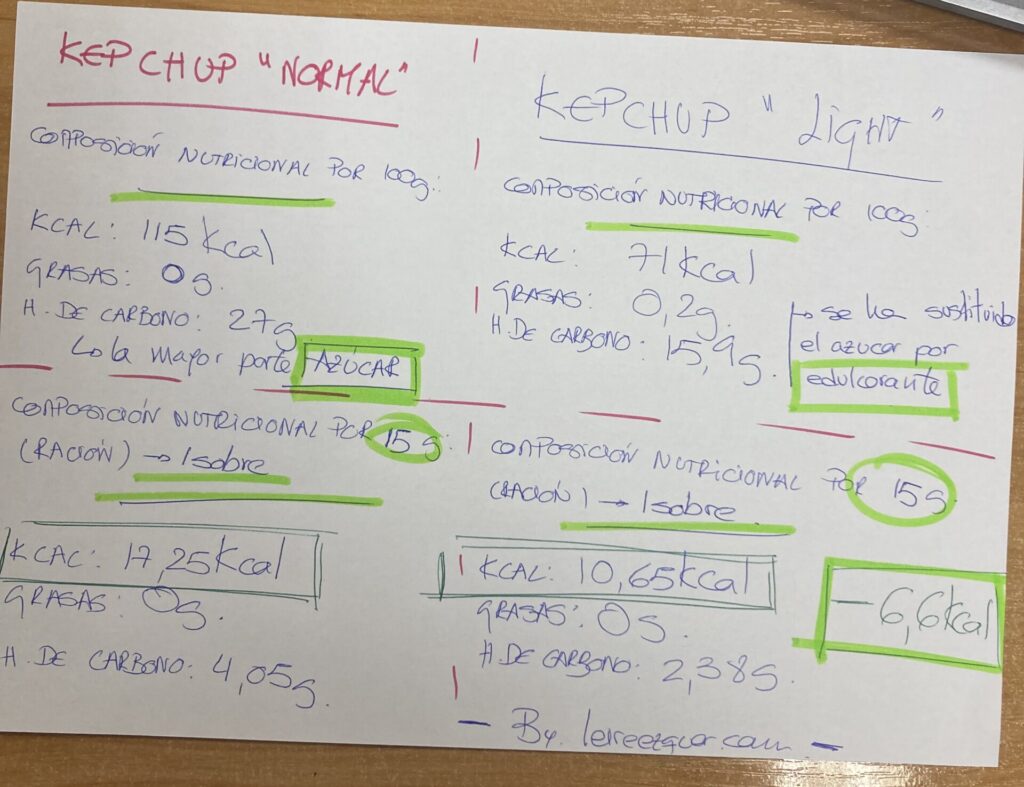 KEPCHUP "NORMAL"
COMPOSICIÓN NUTRICIONAL POR 100g:
KCAL: 115 kcal
GRASAS: 0g.
H. DE CARBONO: 27g
↳ la mayor parte AZÚCAR
COMPOSICIÓN NUTRICIONAL POR 15g:
(RACIÓN) → 1 sobre
KCAL: 17,25 kcal
GRASAS: 0g.
H. DE CARBONO: 4,05g
KEPCHUP "LIGHT"
COMPOSICIÓN NUTRICIONAL POR 100g:
KCAL: 71 kcal
GRASAS: 0,2g.
H. DE CARBONO: 15,9g.
↳ se ha sustituido
el azucar por
edulcorante
COMPOSICIÓN NUTRICIONAL POR 15g.
(RACIÓN) → 1 sobre.
KCAL: 10,65 kcal
GRASAS: 0g.
H. DE CARBONO: 2,38g.
- 6,6 kcal
- By.